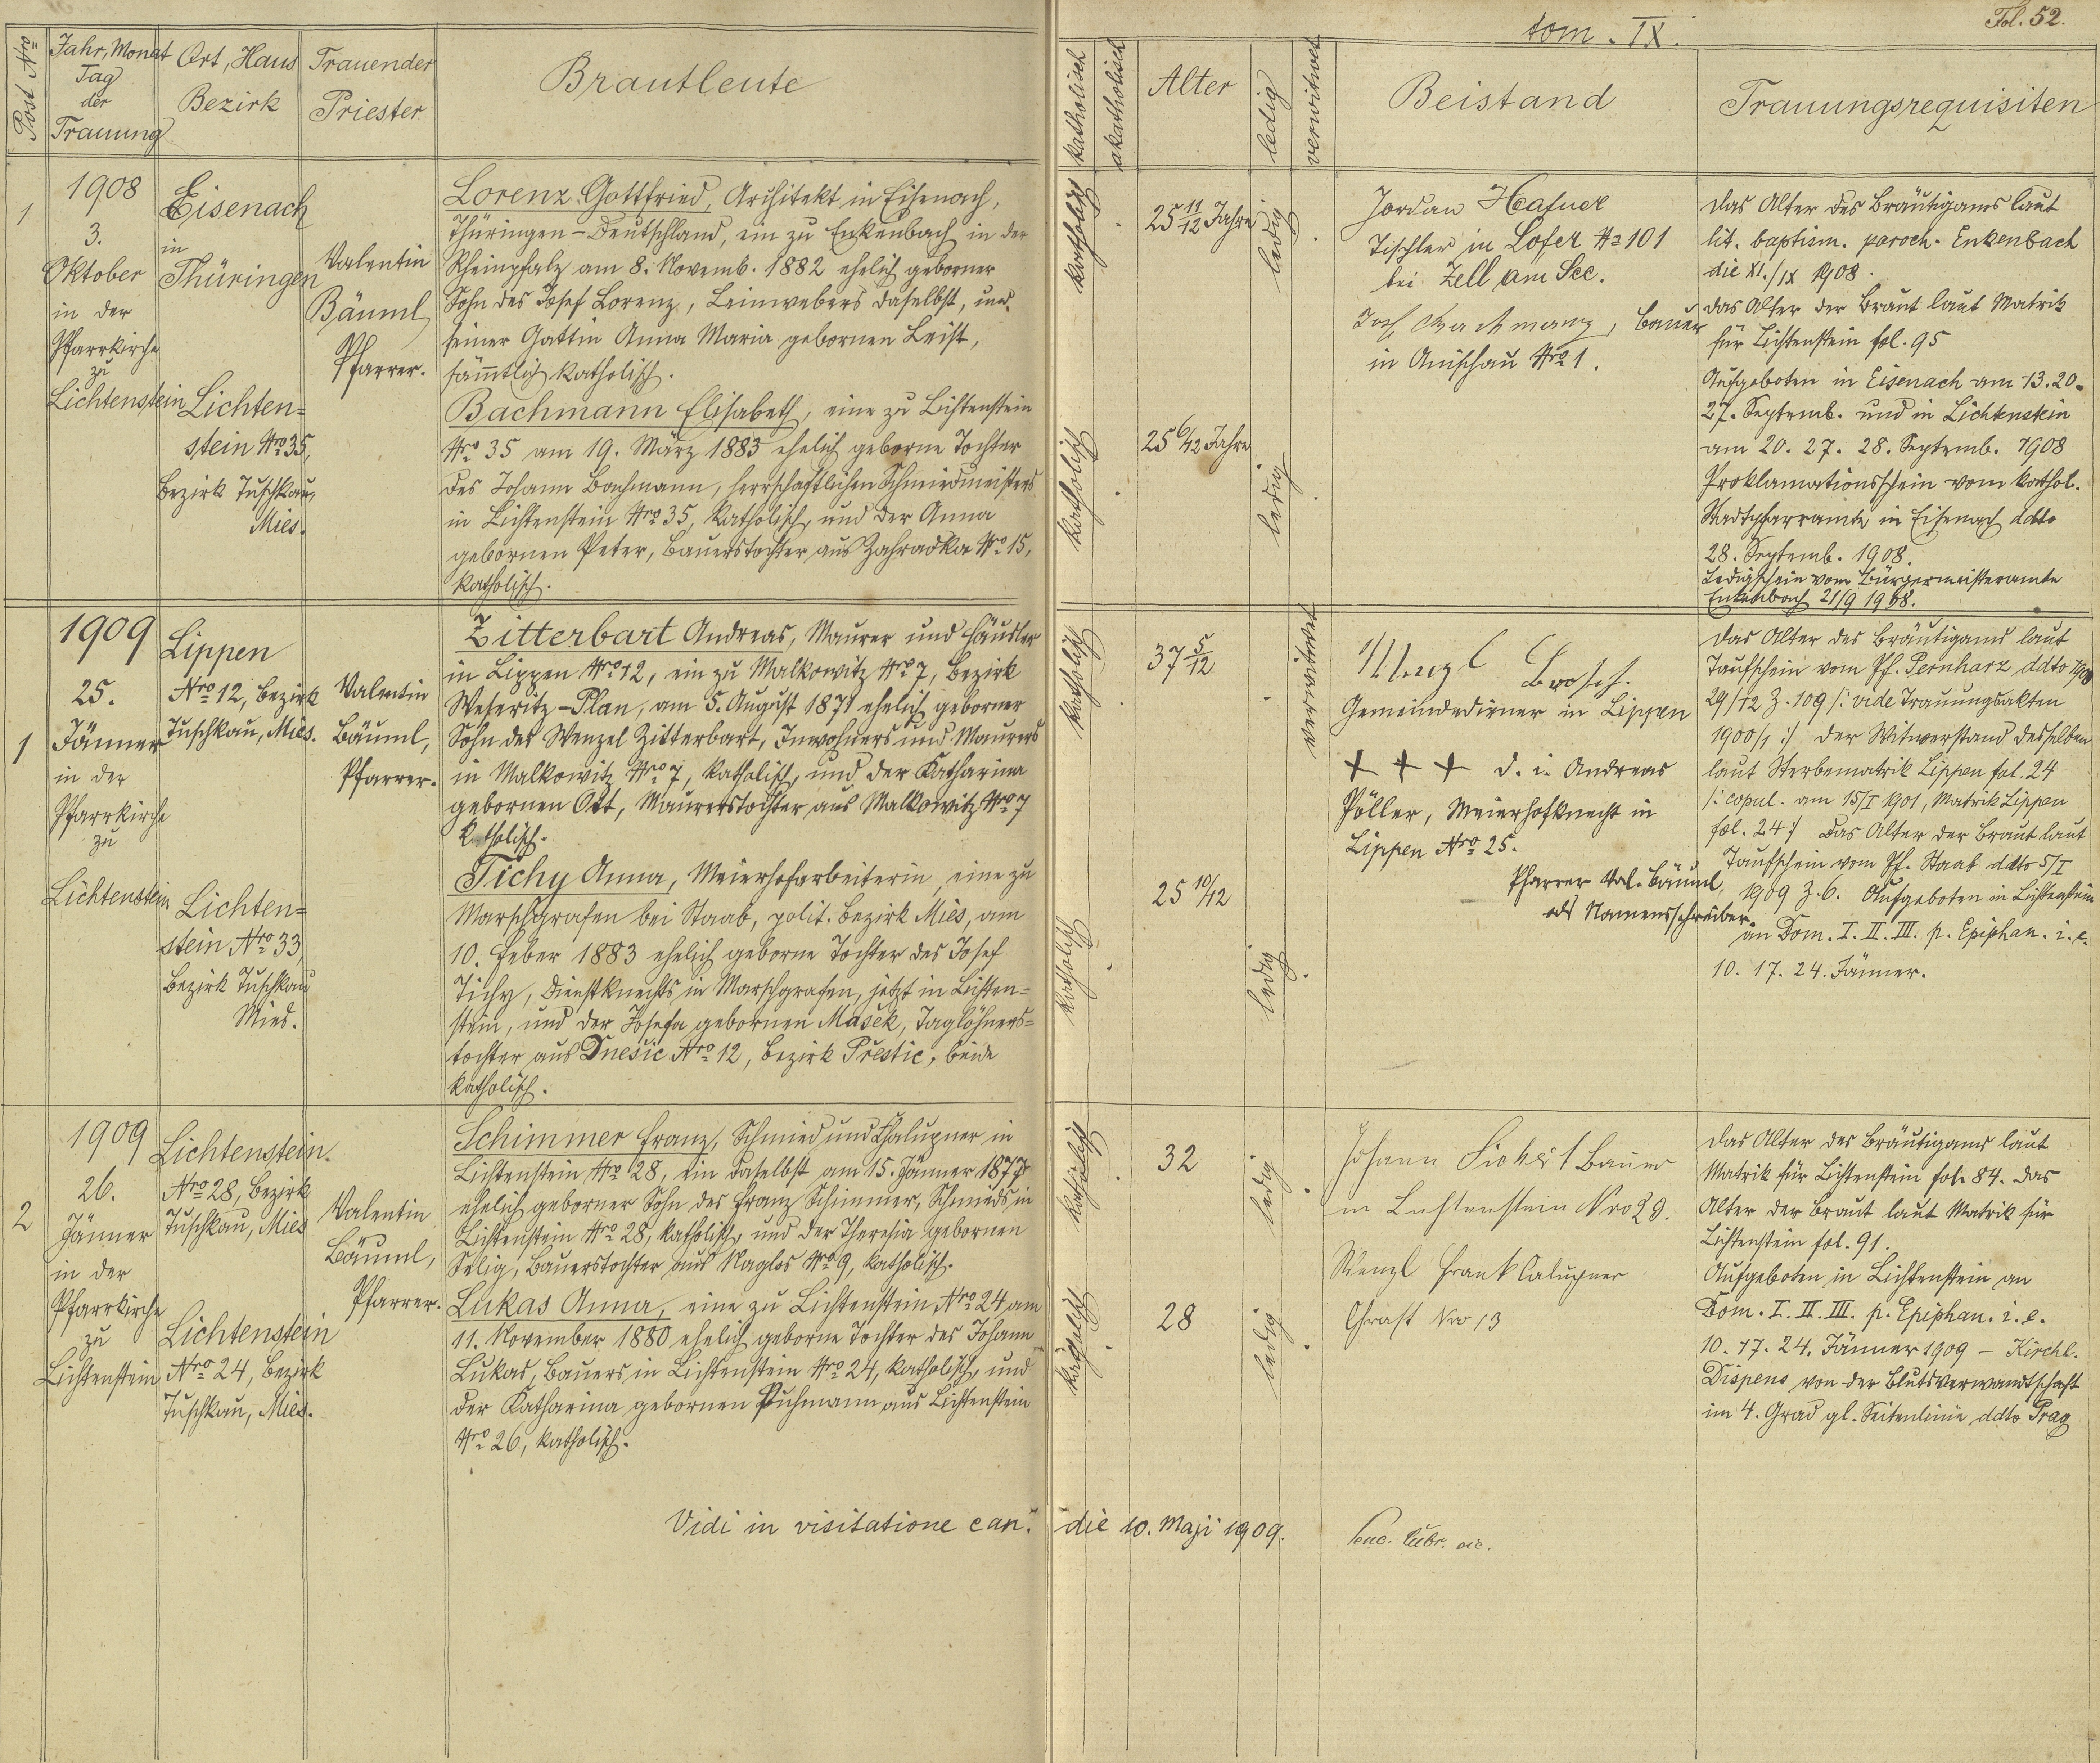 tom. IX.
Fol. 52.
Post Nro
Jahr, Monat
Tag
der
Trauung
Ort, Haus
Bezirk
Trauender
Priester
Brautleute
katholisch
akatholisch
Alter
ledig
verwitwet
Beistand
Trauungsrequisiten
1
1908
3.
Oktober
in der
Pfarrkirche
zu
Lichtenstein
Eisenach
in
Thüringen
Lichten=
stein Nro 35,
Bezirk Tuschkau,
Mies.
Valentin
Bäuml
Pfarrer.
Lorenz Gottfried, Architekt in Eisenach,
Thüringen - Deutschland, ein zu Enkenbach in der
Rheinpfalz am 8. Novemb. 1882 ehelich geborner
Sohn des Josef Lorenz, Leinwebers daselbst, und
seiner Gattin Anna Maria gebornen Leist,
sämtlich katholisch.
Bachmann Elisabeth, eine zu Lichtenstein
Nro 35 am 19. März 1883 ehelich geborne Tochter
des Johann Bachmann, herrschaftlichen Schmiedmeisters
in Lichtenstein Nro 35, katholisch, und der Anna
gebornen Peter, Bauerstochter aus Zahradka Nro 15,
katholisch.
katholisch
25 11/12 Jahre
ledig
katholisch
25 6/12 Jahre
ledig
Jordan Hafner
Tischler in Lofer No 101
bei Zell am See.
Josef Bachmann, Bauer
in Anischau Nro 1.
Das Alter des Bräutigams laut
lit. baptism. paroch. Enkenbach
die XI./IX 1908.
Das Alter der Braut laut Matrik
für Lichtenstein fol. 95
Aufgeboten in Eisenach am 13. 20.
27. Septemb. und in Lichtenstein
am 20. 27. 28. Septemb. 1908
Proklamationsschein vom kathol.
Stadtpfarramte in Eisenach ddto
28. Septemb. 1908.
Ledigschein vom Bürgermeisteramte
Enkenbach 21/9 1908.
1
1909
25.
Jänner
in der
Pfarrkirche
zu
Lichtenstein
Lippen
Nro 12, Bezirk
Tuschkau, Mies.
Lichten=
stein Nro 33,
Bezirk Tuschkau
Mies.
Valentin
Bäuml,
Pfarrer.
Zitterbart Andreas, Maurer und Häusler
in Lippen Nro 12, ein zu Malkowitz Nro 7, Bezirk
Weseritz - Plan, am 5. August 1871 ehelich geborner
Sohn des Wenzel Zitterbart, Inwohners und Maurers
in Malkowitz Nro 7, katholisch, und der Katharina
gebornen Ott, Maurerstochter aus Malkowitz Nro 7
katholisch.
Tichy Anna, Meierhofarbeiterin, eine zu
Marschgrafen bei Staab, polit. Bezirk Mies, am
10. Feber 1883 ehelich geborne Tochter des Josef
Tichy, Dienstknechts in Marschgrafen, jetzt in Lichten=
stein, und der Josefa gebornen Mašek, Taglöhners=
tochter aus Dnešic Nro 12, Bezirk Přestic, beide
katholisch.
katholisch
37 5/12
verwitwet
katholisch
25 10/12
ledig
Wenzl Brosch.
Gemeindediener in Lippen
+ + + d. i. Andreas
Pöller, Meierhofknecht in
Lippen Nro 25.
Pfarrer Val. Bäuml,
als Namensschreiber.
Das Alter des Bräutigams laut
Taufschein vom Pf. Pernharz ddto 1900
29/12 Z. 109 /: vide Trauungsakten
1900/1 :/ Der Witwerstand desselben
laut Sterbematrik Lippen fol. 24
/: copul. am 15/I 1901, Matrik Lippen
fol. 24 :/ Das Alter der Braut laut
Taufschein vom Pf. Staab ddto 5/I
1909 Z. 6. Aufgeboten in Lichtenstein
an Dom. I. II. III. p. Epiphan. i. e.
10. 17. 24. Jänner.
2
1909
26.
Jänner
in der
Pfarrkirche
zu
Lichtenstein
Lichtenstein.
Nro 28, Bezirk
Tuschkau, Mies
Lichtenstein
Nro 24, Bezirk
Tuschkau, Mies.
Valentin
Bäuml,
Pfarrer.
Schimmer Franz, Schmied und Chalupner in
Lichtenstein Nro 28, ein daselbst am 15. Jänner 1877
ehelich geborner Sohn des Franz Schimmer, Schmieds in
Lichtenstein Nro 28, katholisch, und der Theresia gebornen
Selig, Bauerstochter aus Naglos Nro 9, katholisch.
Lukas Anna, eine zu Lichtenstein Nro 24 am
11. November 1880 ehelich geborne Tochter des Johann
Lukas, Bauers in Lichtenstein Nro 24, katholisch, und
der Katharina gebornen Puhmann aus Lichtenstein
Nro 26, katholisch.
katholisch
32
ledig
katholisch
28
ledig
Johann Bauer
in Lichtenstein Nro 29.
Wenzl Frank Calupner
Chrast Nro 13
Das Alter des Bräutigams laut
Matrik für Lichtenstein fol. 84. Das
Alter der Braut laut Matrik für
Lichtenstein fol. 91.
Aufgeboten in Lichtenstein an
Dom. I. II. III. p. Epiphan. i. e.
10. 17. 24. Jänner 1909 - Kirchl.
Dispens von der Blutsverwandtschaft
im 4. Grad gl. Seitenlinie ddto Prag
Vidi in visitatione can. die 10. Maji 1909.